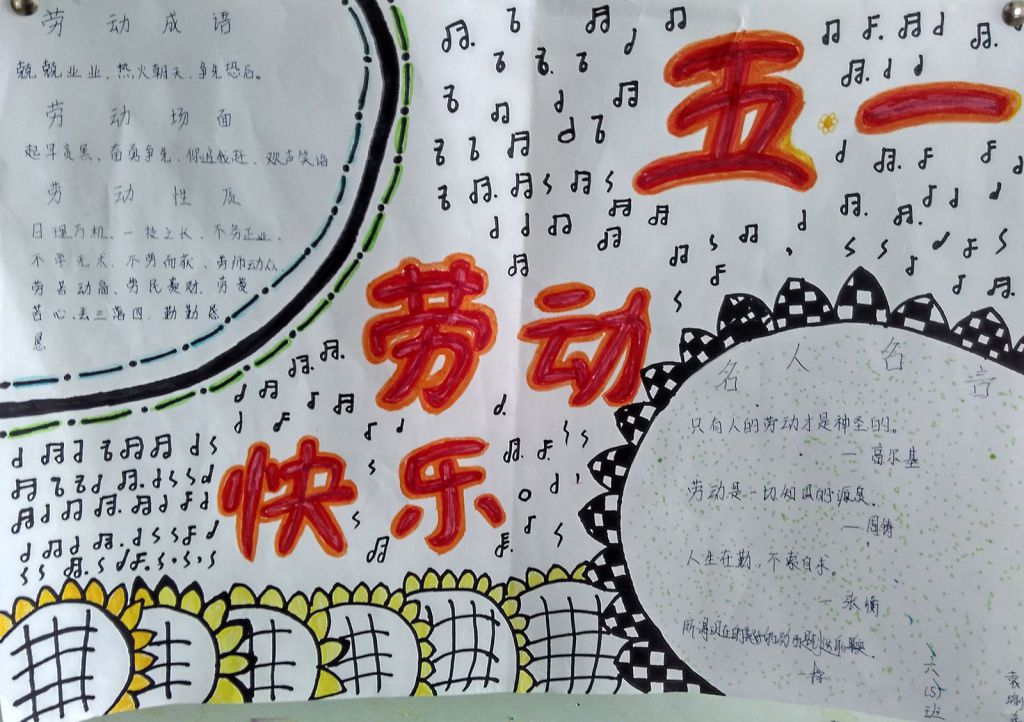 劳动成语
兢兢业业、热火朝天、争先恐后。
劳动场面
起早贪黑、奋勇争先、你追我赶、欢声笑语
劳动性质
日理万机、一技之长、不务正业、
不学无术、不劳而获、劳师动众
劳苦动高、劳民费财、劳费
苦心、丢三落四、勤勤恳
恳
五一
劳动
快乐
名人名言
只有人的劳动才是神圣的。
一 高尔基
劳动是一切知识的源泉.
一陶铸
人生在勤,不索自求。
一 张衡
六
(5)
班